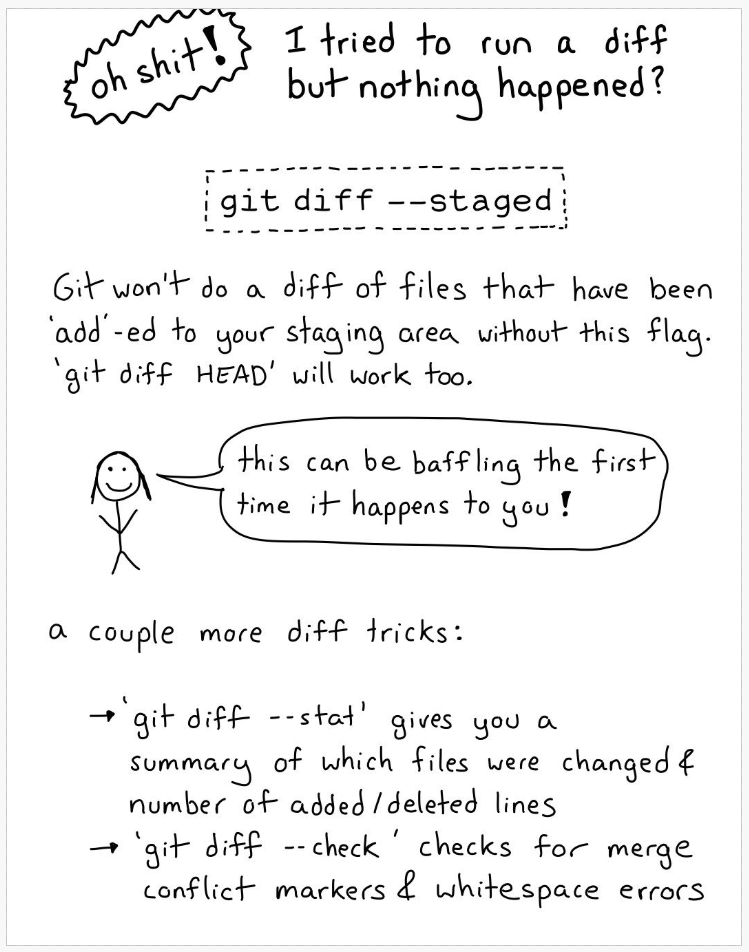 oh shit!
I tried to run a diff
but nothing happened?
git diff --staged
Git won't do a diff of files that have been
'add'-ed to your staging area without this flag.
'git diff HEAD' will work too.
this can be baffling the first
time it happens to you!
a couple more diff tricks:
→ 'git diff --stat' gives you a
summary of which files were changed &
number of added/deleted lines
→ 'git diff --check' checks for merge
conflict markers & whitespace errors